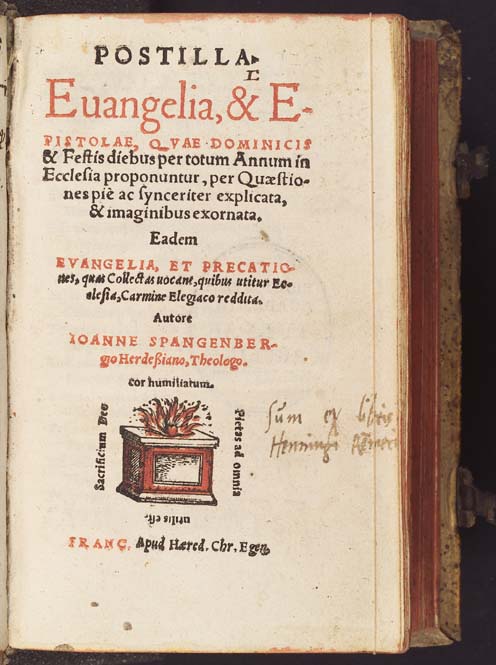 POSTILLA
Euangelia, & E-
PISTOLAE, QVAE DOMINICIS
& Festis diebus per totum Annum in
Ecclesia proponuntur, per Quæstio-
nes piè ac synceriter explicata,
& imaginibus exornata.
Eadem
EVANGELIA, ET PRECATIO-
nes, quas Collectas uocant, quibus utitur Ec-
clesia, Carmine Elegiaco reddita.
Autore
IOANNE SPANGENBER-
gio Herdeßiano, Theologo.
cor humiliatum.
Sacrificium Deo
Pietas ad omnia
utilis est.
Sum ex libris
Henningi
FRANC. Apud Hæred. Chr. Egen.